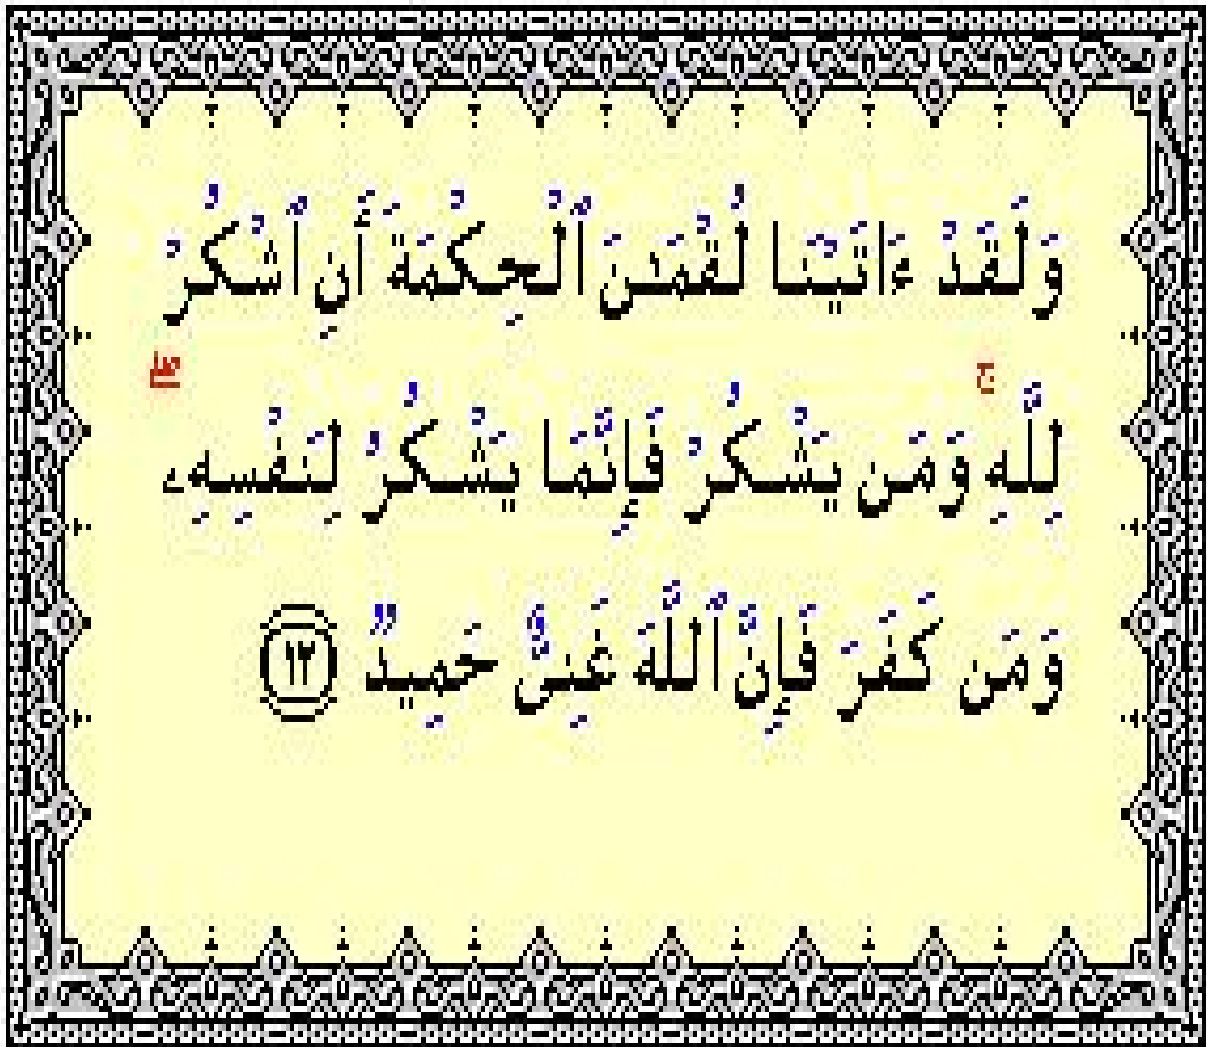 وَلَقَدْ ءَاتَيْنَا لُقْمَـٰنَ ٱلْحِكْمَةَ أَنِ ٱشْكُرْ
لِلَّهِ ۚ وَمَن يَشْكُرْ فَإِنَّمَا يَشْكُرُ لِنَفْسِهِۦ ۖ
وَمَن كَفَرَ فَإِنَّ ٱللَّهَ غَنِىٌّ حَمِيدٌ ١٢